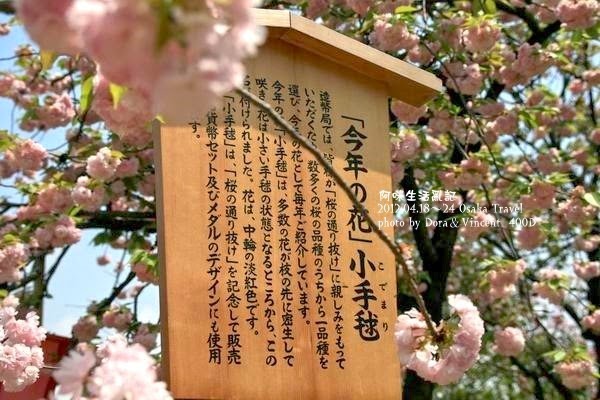 「今年の花」小手毬
こでまり
造幣局では、皆様が「桜の通り抜け」に親しみをもって
いただくため、数多くの桜の品種のうちから一品種を
選び、今年の花として毎年ご紹介しています。
今年の花「小手毬」は、多数の花が枝の先に密生して
咲き、花は小さい手毬の状態となるところから、この
名が付けられました。花は、中輪の淡紅色です。
「小手毬」は、「桜の通り抜け」を記念して販売
貨幣セット及びメダルのデザインにも使用
す。
2012/04.18～24 Osaka Travel
photo by Dora & Vincent 400D